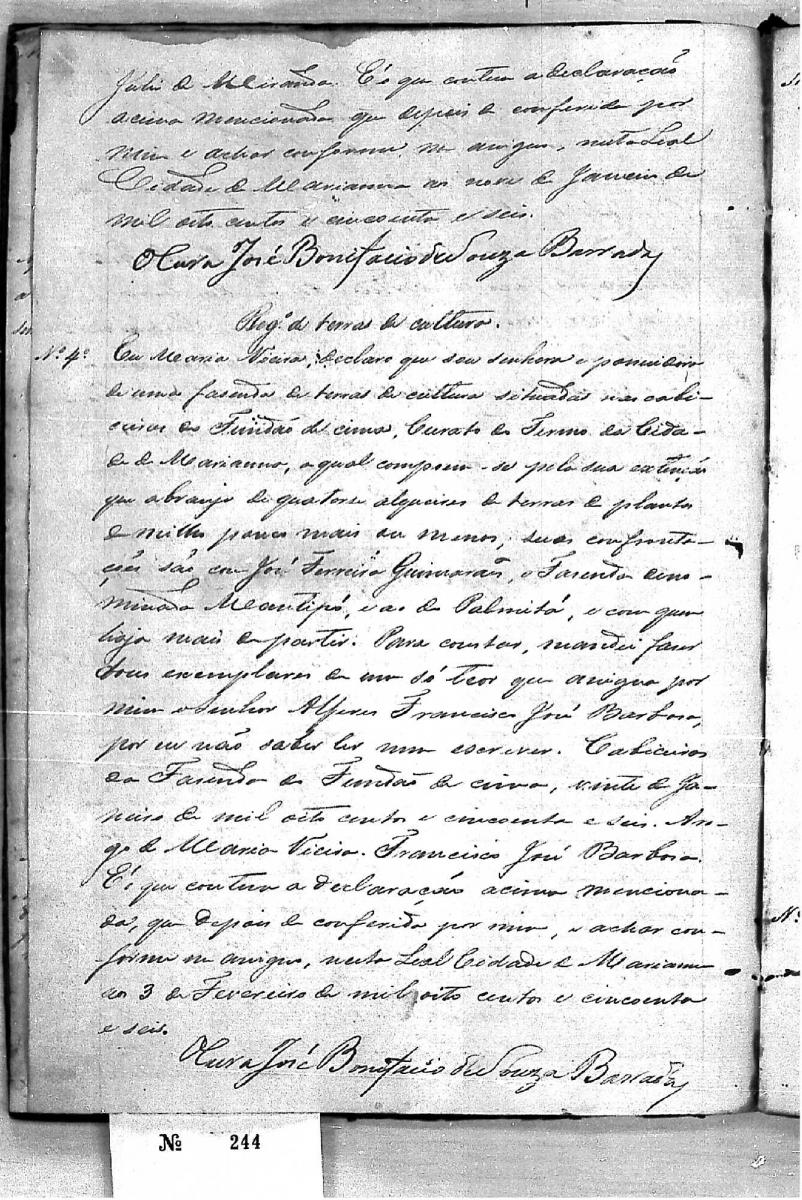 Julio de Miranda. É o que contem a declaração
acima mencionada que depois de conferida por
mim e achar conforme me assigno, nesta Leal
Cidade de Marianna aos nove de Janeiro de
mil oito centos e cincoenta e seis.
O Cura José Bonifacio de Souza Barradas
Reg.o de terras de cultura.
N.o 4.o Eu Maria Vieira, declaro que sou senhora e possuidora
de uma fasenda de terras de cultura situadas nas cabi-
ceiras do Fundão de cima, Curato do Termo da Cida-
de de Marianna, a qual compoem-se pela sua extenção
que abranje de quatorse alqueires de terras de plantas
de milho pouco mais ou menos, suas confronta-
ções são com José Ferreira Guimarães, e Fasenda deno-
minada Mantipó, e as do Palmitá, e com quem
haja mais de partir. Para constar, mandei faser
dous exemplares de um só teor que assigna por
mim o Senhor Alferes Francisco José Barbosa,
por eu não saber ler nem escrever. Cabiceiras
da Fasenda do Fundão de cima, vinte de Ja-
neiro de mil oito centos e cincoenta e seis. A ro-
go de Maria Vieira. Francisco José Barbosa.
É o que contem a declaração acima menciona-
da, que depois de conferida por mim, e achar con-
forme me assigno, nesta Leal Cidade de Marianna
aos 3 de Fevereiro de mil oito centos e cincoenta
e seis.
O Cura José Bonifacio de Souza Barradas
N.o
No 244